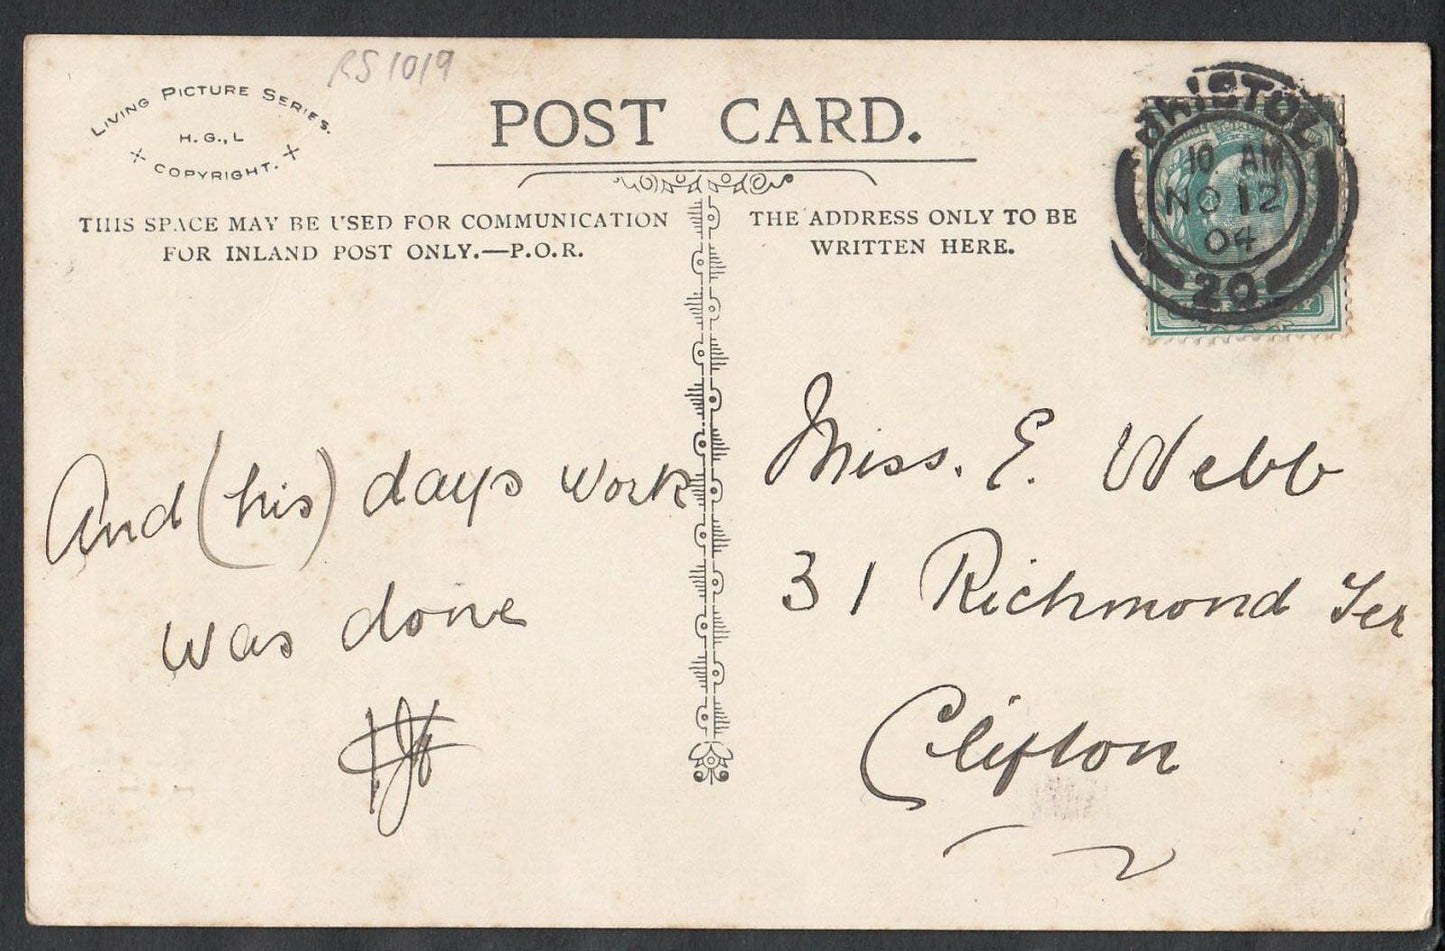 RS 1019
LIVING PICTURE SERIES.
H. G., L
COPYRIGHT.
POST CARD.
THIS SPACE MAY BE USED FOR COMMUNICATION
FOR INLAND POST ONLY.—P.O.R.
THE ADDRESS ONLY TO BE
WRITTEN HERE.
BRISTOL
10 AM
NO 12
04
20
And (his) days work
was done
Miss. E. Webb
31 Richmond Ter
Clifton